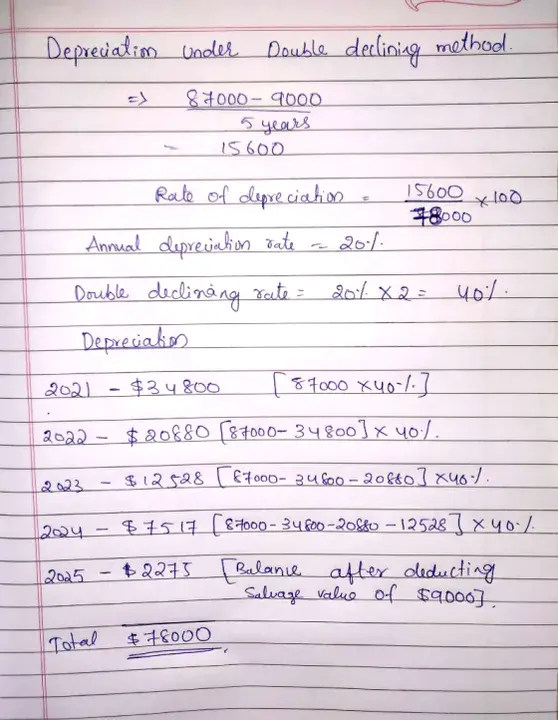 Depreciation under Double declining method.
=> 87000 - 9000
5 years
= 15600
Rate of depreciation = 15600 × 100
78000
Annual depreciation rate = 20%
Double declining rate = 20% × 2 = 40%.
Depreciation
2021 - $34800 [87000 × 40%]
2022 - $20880 [87000 - 34800] × 40%.
2023 - $12528 [87000 - 34800 - 20880] × 40%.
2024 - $7517 [87000 - 34800 - 20880 - 12528] × 40%.
2025 - $2275 [Balance after deducting
Salvage value of $9000].
Total $78000.